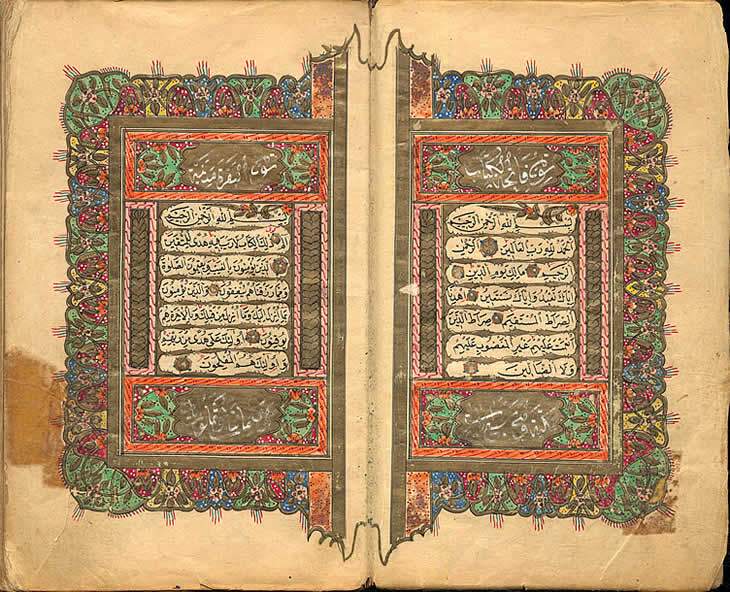 سورة فاتحة الكتاب
بسم الله الرحمن الرحيم
الحمد لله رب العالمين الرحمن
الرحيم مالك يوم الدين
اياك نعبد واياك نستعين اهدنا
الصراط المستقيم صراط الذين
انعمت عليهم غير المغضوب عليهم
ولا الضالين
سورة البقرة مدنية
بسم الله الرحمن الرحيم
الم ذلك الكتاب لا ريب فيه هدى للمتقين
الذين يؤمنون بالغيب ويقيمون الصلوة
ومما رزقناهم ينفقون والذين يؤمنون
بما انزل اليك وما انزل من قبلك وبالاخرة هم
يوقنون اولئك على هدى من ربهم
واولئك هم المفلحون